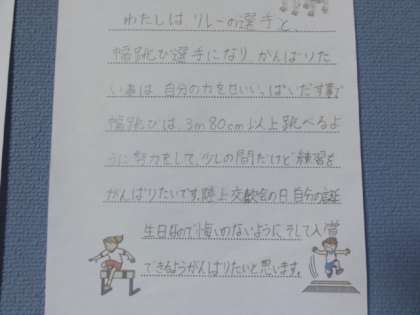 わたしは、リレーの選手と、
幅跳び選手になり、がんばりた
いあは、自分の力をせいいっぱいだす事で
幅跳びは、3m80cm以上跳べるよ
うに努力をして、少しの間だけど練習を
がんばりたいです。陸上交歓会の日、自分の誕
生日なので悔いのないように、そして入賞
できるようがんばりたいと思います。